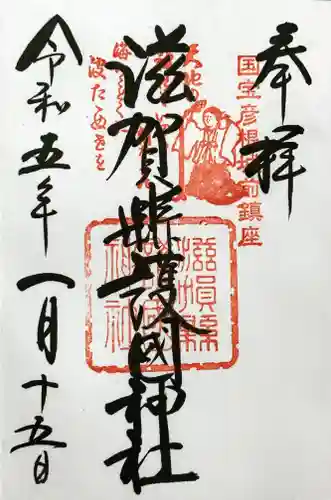 奉拝
国宝彦根城前鎮座
滋賀縣護國神社
滋賀縣護國神社
令和五年一月十五日